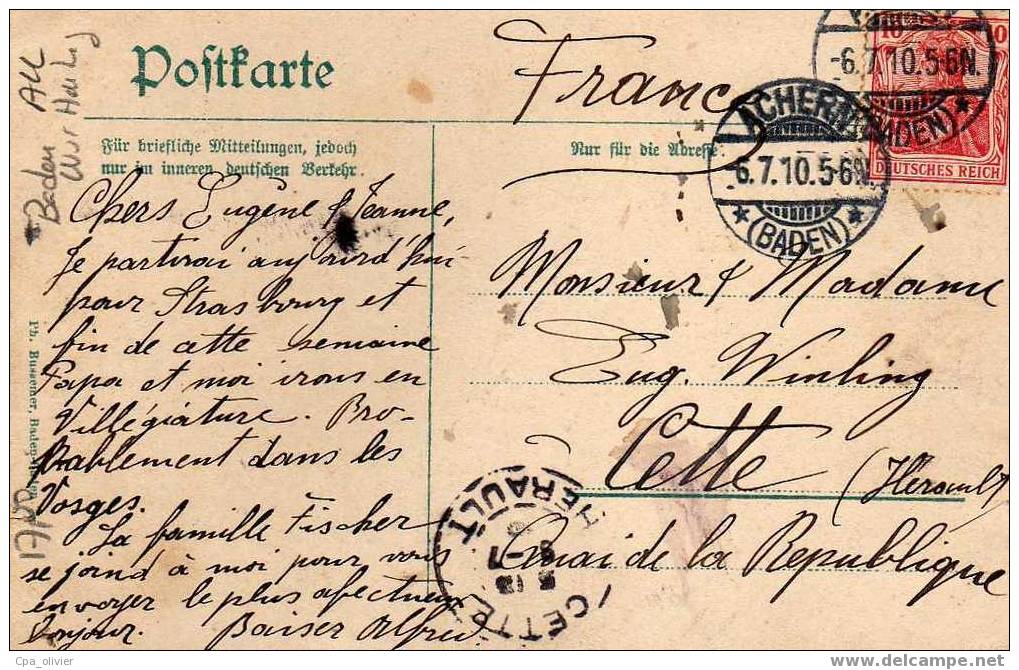 Postkarte
Für briefliche Mitteilungen, jedoch
nur im inneren deutschen Verkehr.
Nur für die Adresse.
France
ACHERN
-6.7.10.5-6N.
(BADEN)
-6.7.10.5-6N.
(BADEN)
10
10
DEUTSCHES REICH
Baden All
Chers Eugène & Jeanne,
Je partirai aujourd'hui
pour Strasbourg et
fin de cette semaine
Papa et moi irons en
Villégiature. Pro-
bablement dans les
Vosges.
La famille Fischer
se joind à moi pour vous
envoyer le plus afectueux
bonjour. Baiser Alfred
Monsieur & Madame
Eug. Winling
Cette (Herault)
Quai de la Republique
CETTE
HERAULT
Ph. Bussemer, Baden-Baden
Cpa_olivier
www.delcampe.net